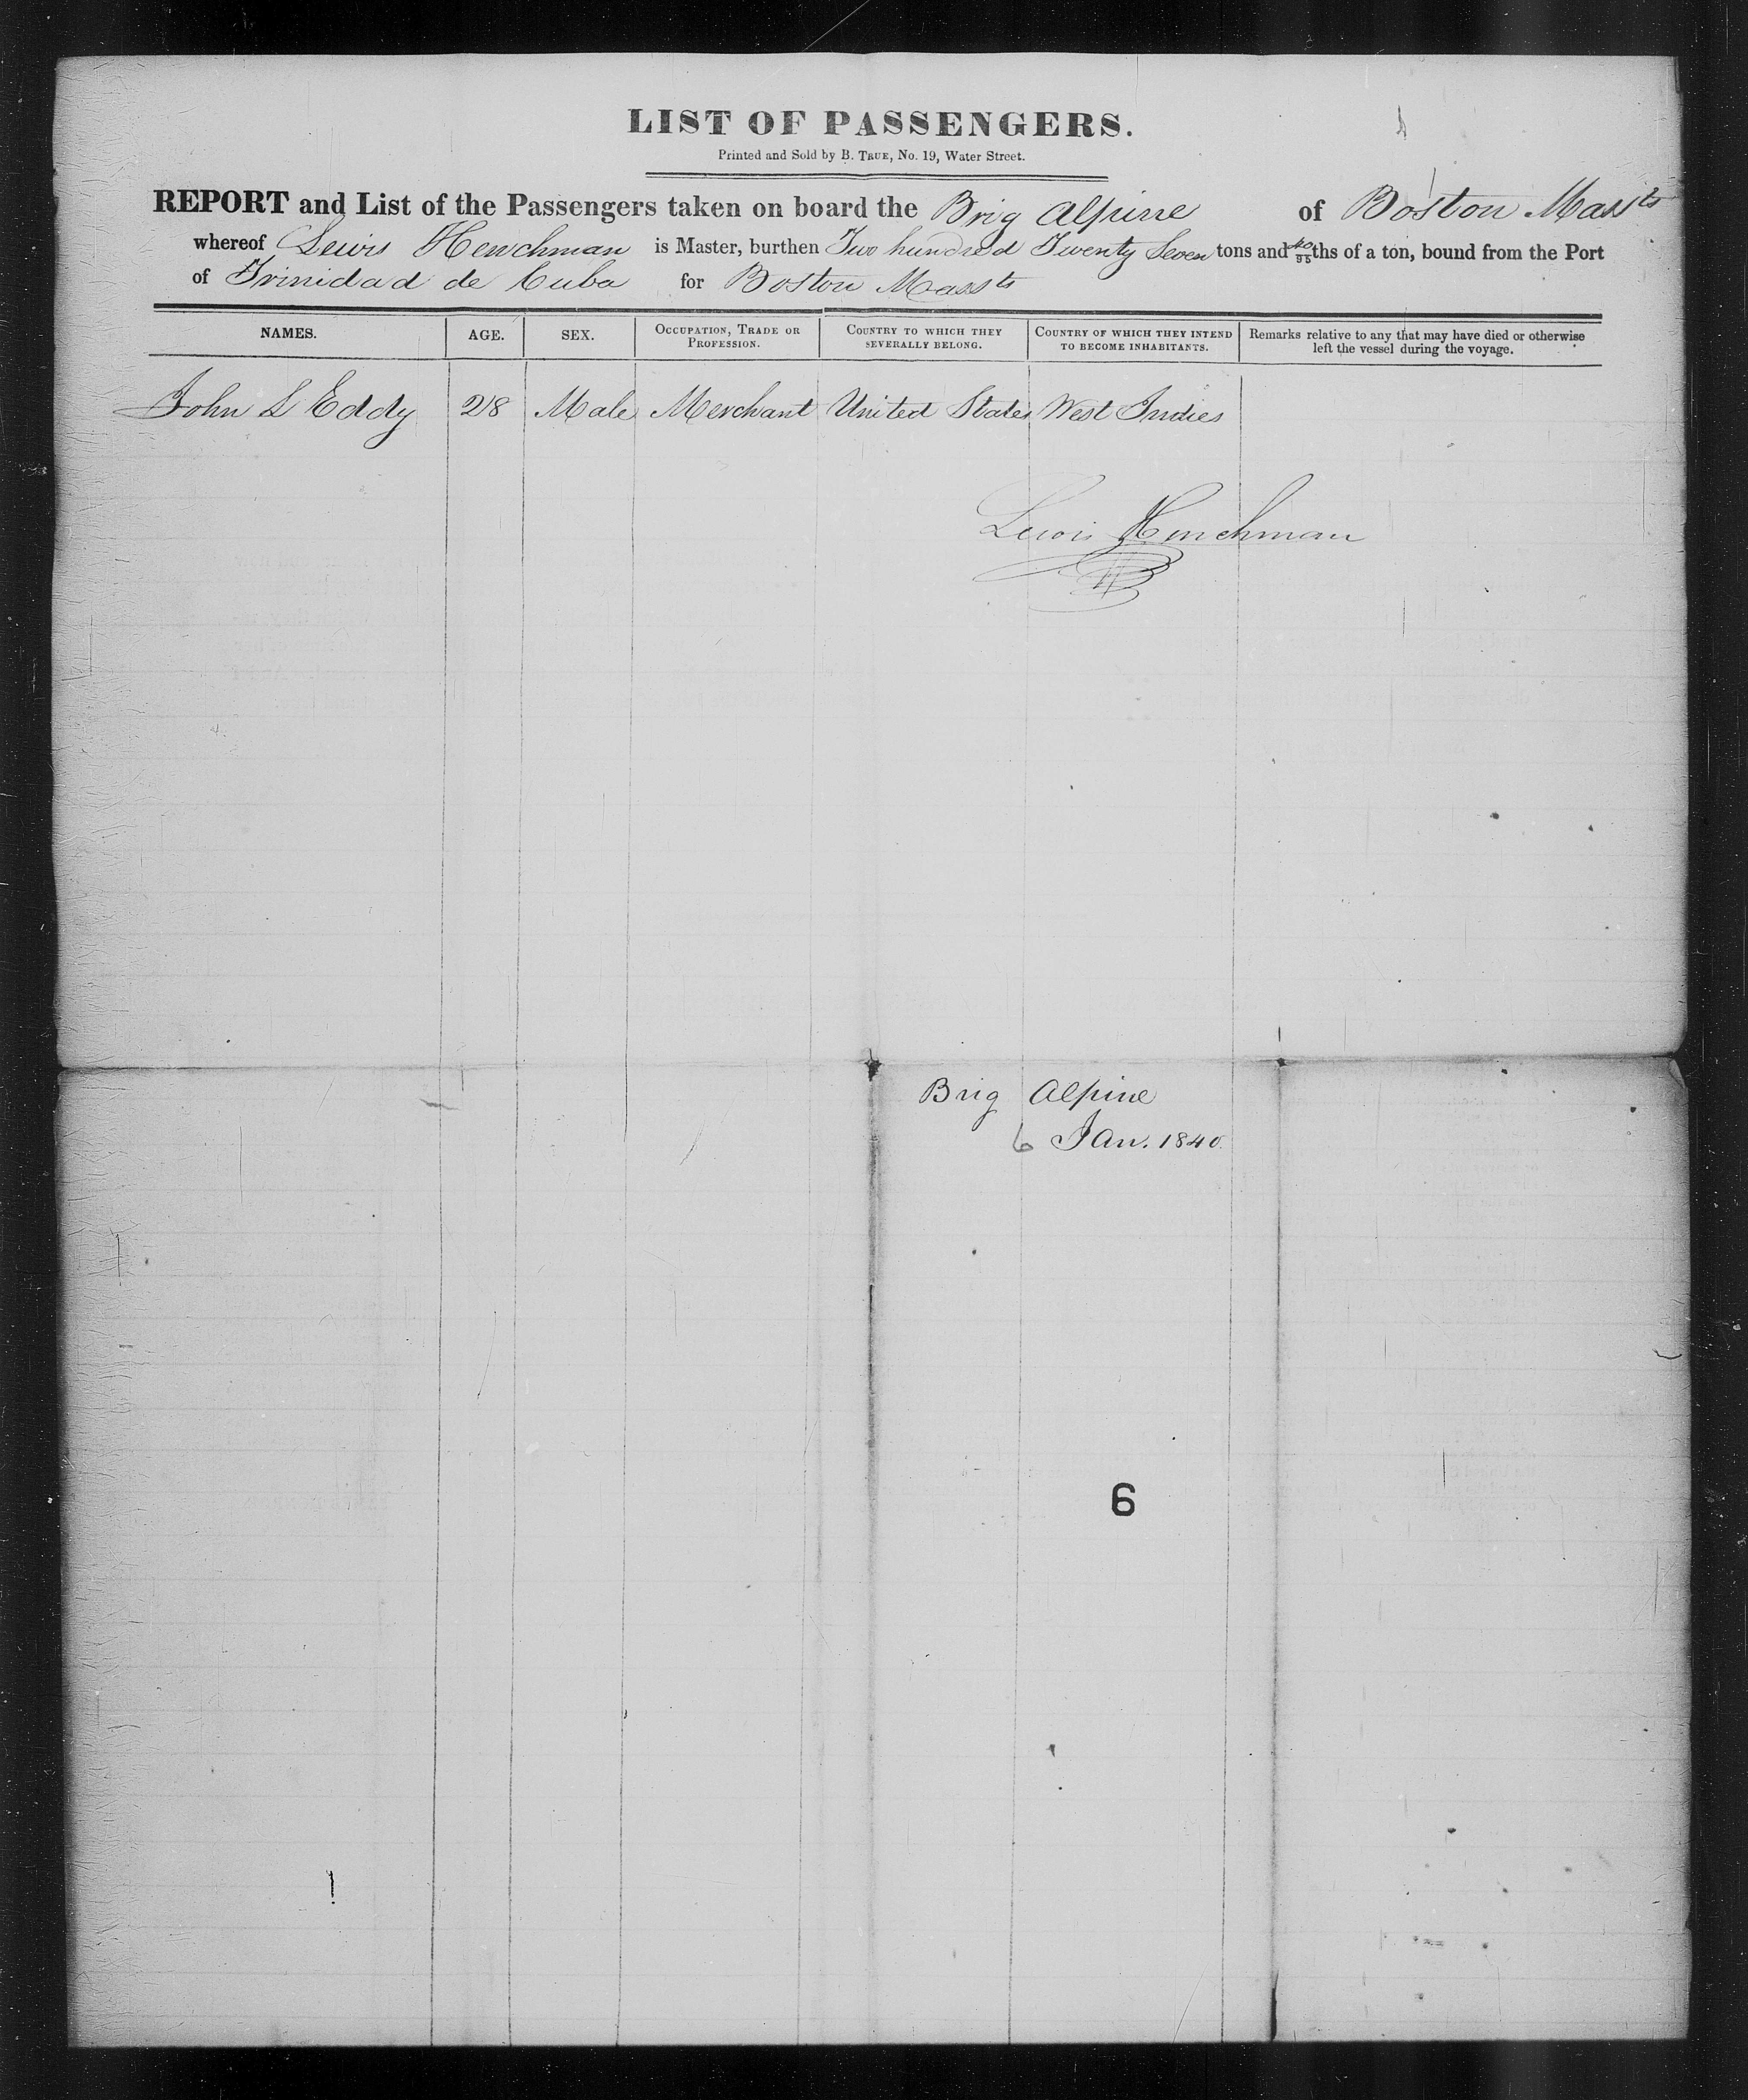 LIST OF PASSENGERS.
Printed and Sold by B. TRUE, No. 19, Water Street.
REPORT and List of the Passengers taken on board the Brig Alpine of Boston Massts
whereof Lewis Henchman is Master, burthen Two hundred Twenty Seven tons and 40/95ths of a ton, bound from the Port
of Trinidad de Cuba for Boston Massts
NAMES. AGE. SEX. OCCUPATION, TRADE OR PROFESSION. COUNTRY TO WHICH THEY SEVERALLY BELONG. COUNTRY OF WHICH THEY INTEND TO BECOME INHABITANTS. Remarks relative to any that may have died or otherwise left the vessel during the voyage.
John L Eddy 28 Male Merchant United States West Indies
Lewis Henchman
Brig Alpine
6 Jan. 1840
6